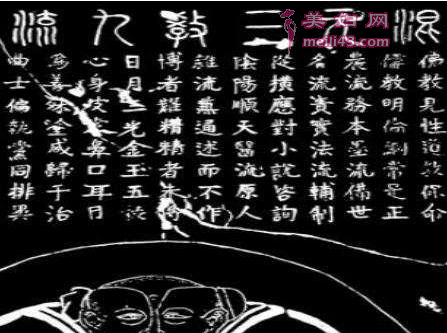 混元三教九流
佛教見性道教保命
儒教明倫綱常是正
農流務本墨流備世
名流責實法流輔制
從橫應對小說咨詢
陰陽順天醫流原人
雜流兼通述而不作
博者難精精者未博
日月三光金玉五穀
心身皮膚鼻口耳目
為善殊塗咸歸于治
曲士偏執黨同排異